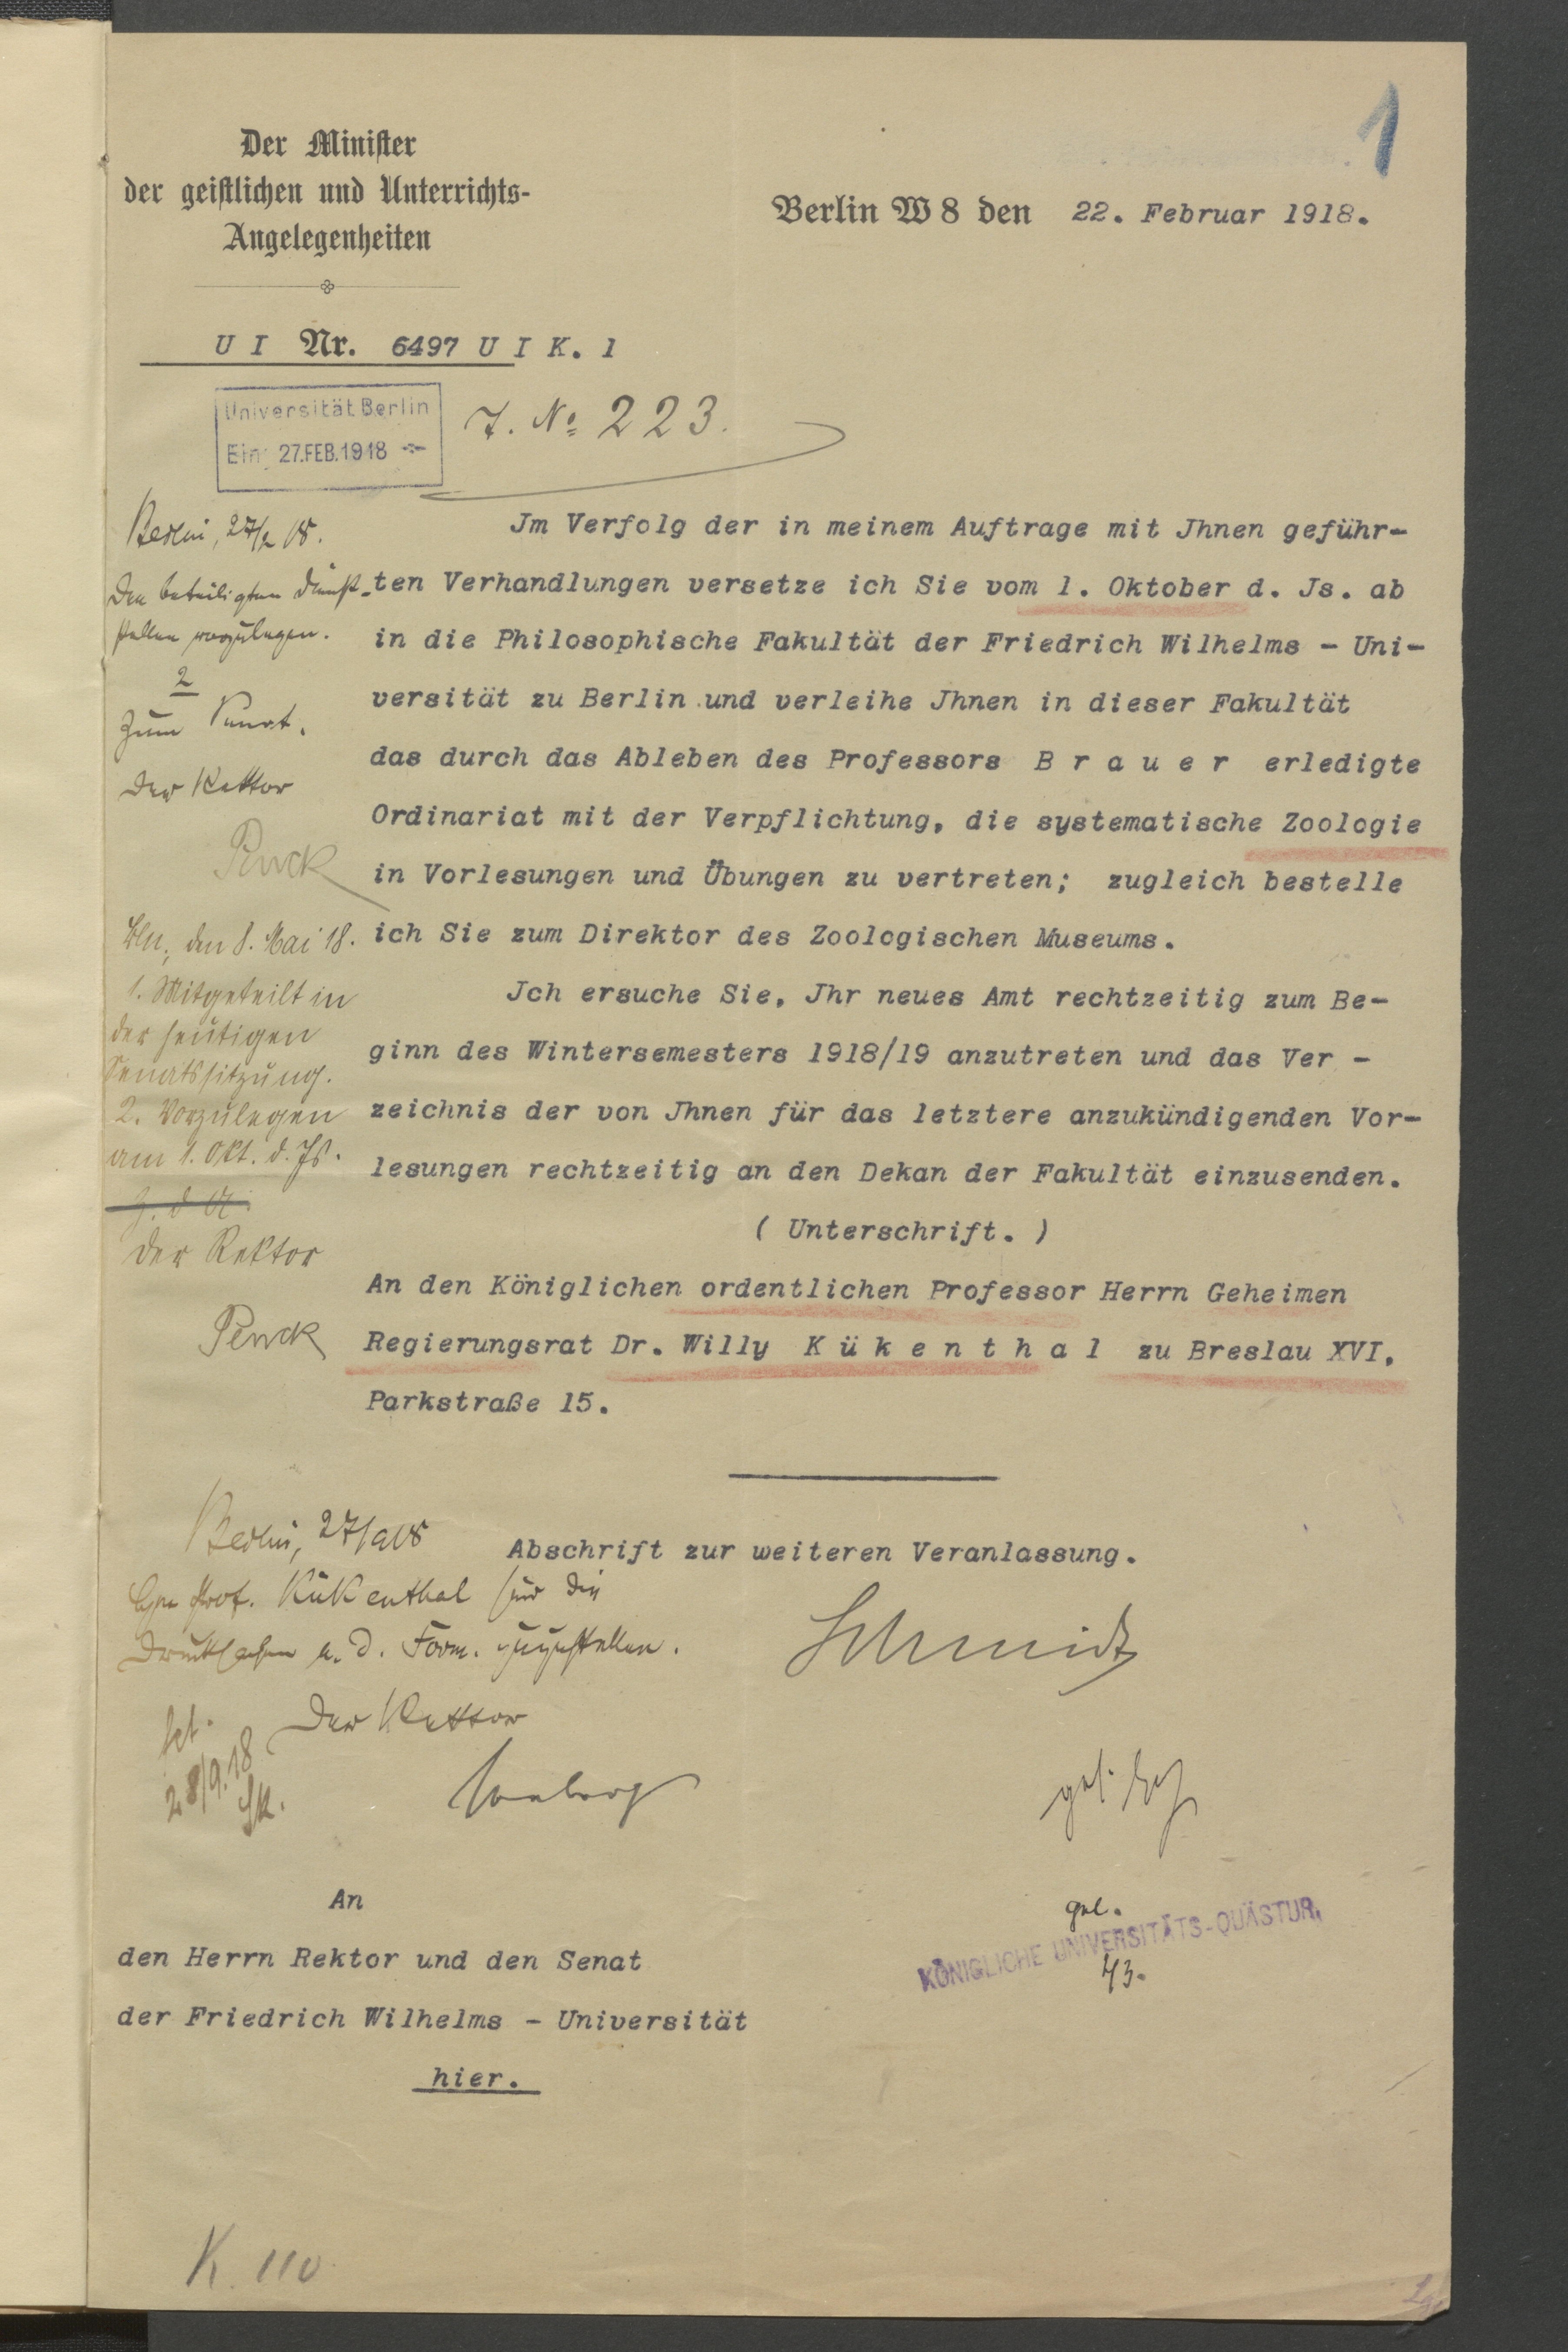 1
Der Minister
der geistlichen und Unterrichts-
Angelegenheiten
Berlin W 8 den 22. Februar 1918.
U I Nr. 6497 U I K. 1
Universität Berlin
Ein: 27.FEB.1918
J. No 223.
Berlin, 27/2 18.
Den beteiligten Dienst-
stellen vorzulegen.
2
Zum Senat.
Der Rektor
Penck
Bln, den 8. Mai 18.
1. Mitgeteilt in
der heutigen
Senatssitzung.
2. Vorzulegen
am 1. Okt. d. Js.
Z. d. A.
Der Rektor
Penck
Jm Verfolg der in meinem Auftrage mit Jhnen geführ-
ten Verhandlungen versetze ich Sie vom 1. Oktober d. Js. ab
in die Philosophische Fakultät der Friedrich Wilhelms - Uni-
versität zu Berlin und verleihe Jhnen in dieser Fakultät
das durch das Ableben des Professors B r a u e r erledigte
Ordinariat mit der Verpflichtung, die systematische Zoologie
in Vorlesungen und Übungen zu vertreten; zugleich bestelle
ich Sie zum Direktor des Zoologischen Museums.
Jch ersuche Sie, Jhr neues Amt rechtzeitig zum Be-
ginn des Wintersemesters 1918/19 anzutreten und das Ver -
zeichnis der von Jhnen für das letztere anzukündigenden Vor-
lesungen rechtzeitig an den Dekan der Fakultät einzusenden.
( Unterschrift. )
An den Königlichen ordentlichen Professor Herrn Geheimen
Regierungsrat Dr. Willy K ü k e n t h a l zu Breslau XVI,
Parkstraße 15.
Abschrift zur weiteren Veranlassung.
Schmidt
Berlin, 27/9 18
Prof. Kükenthal sind die
Drucksachen u. d. Form. zuzustellen.
Der Rektor
28/9.18
gel.
KÖNIGLICHE UNIVERSITÄTS-QUÄSTUR.
An
den Herrn Rektor und den Senat
der Friedrich Wilhelms - Universität
hier.
K. 110